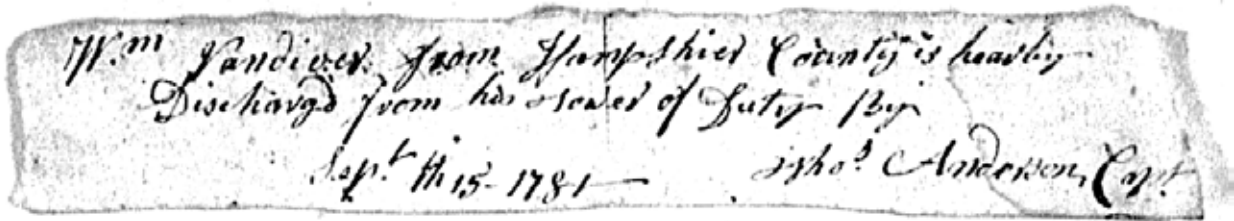 Wm Vandiver from Hampshier County is hearby
Dischargd from his tower of Duty By
Sept th 15 - 1781 Thos Anderson, Capt